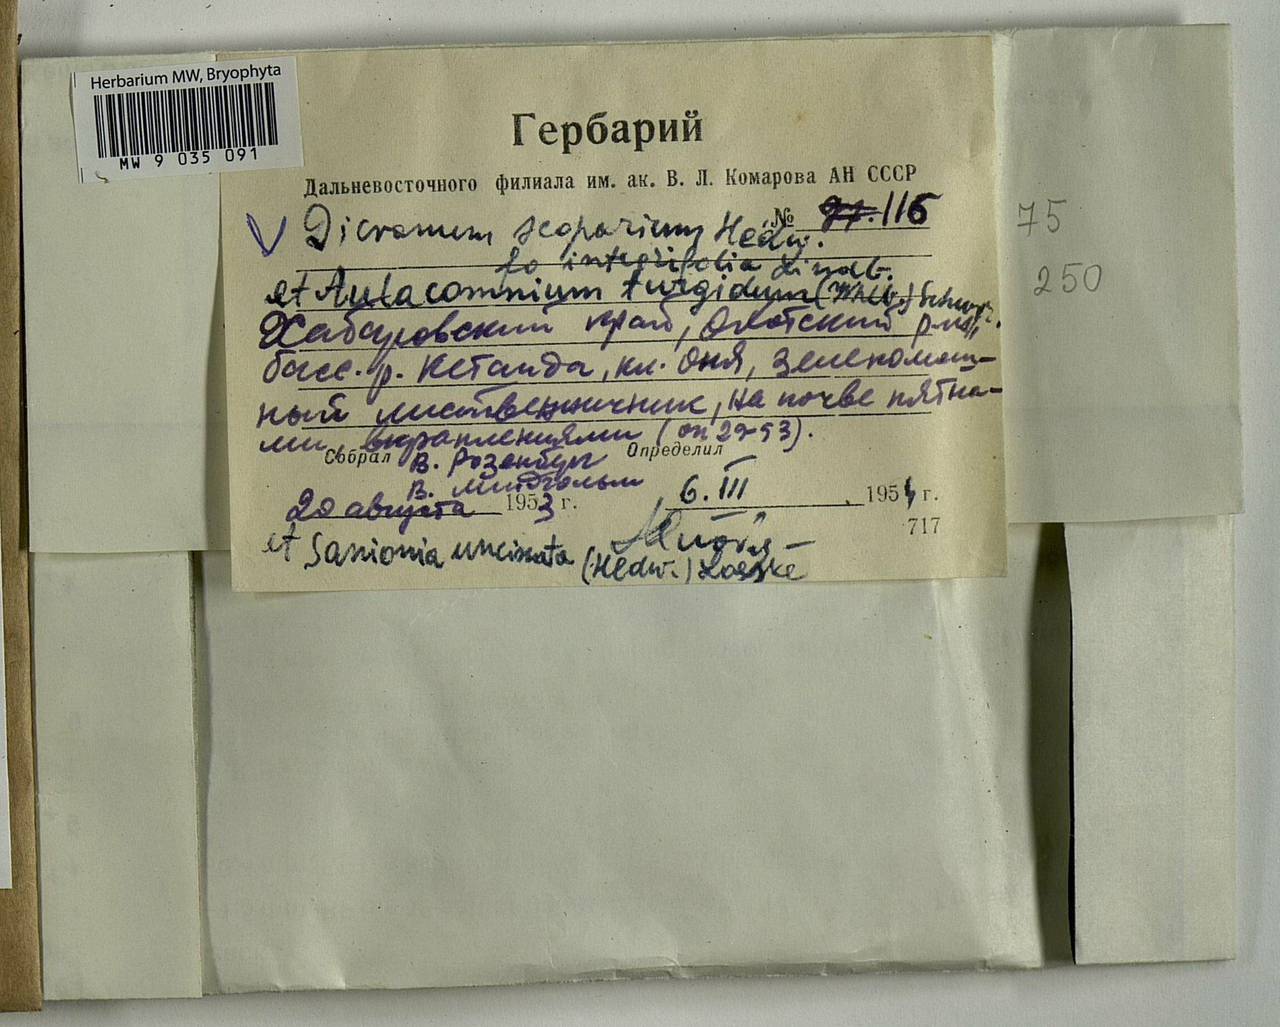 Herbarium MW, Bryophyta
MW 9 035 091
Гербарий
Дальневосточного филиала им. ак. В. Л. Комарова АН СССР
№ 77. 116
V Dicranum scoparium Hedw.
fo integrifolia Lindb.
et Aulacomnium turgidum (Whlb.) Schwgr.
Хабаровский край, Охотский р-н,
басс. р. Кетанда, кл. Оня, зеленомош-
ный лиственничник, на почве пятна-
ми, вкраплениями (оп 29-53).
Собрал В. Розенберг Определил
В.
20 августа 1953 г. 6. III 1954 г.
717
et Sanionia uncinata (Hedw.) Loeske
75
250